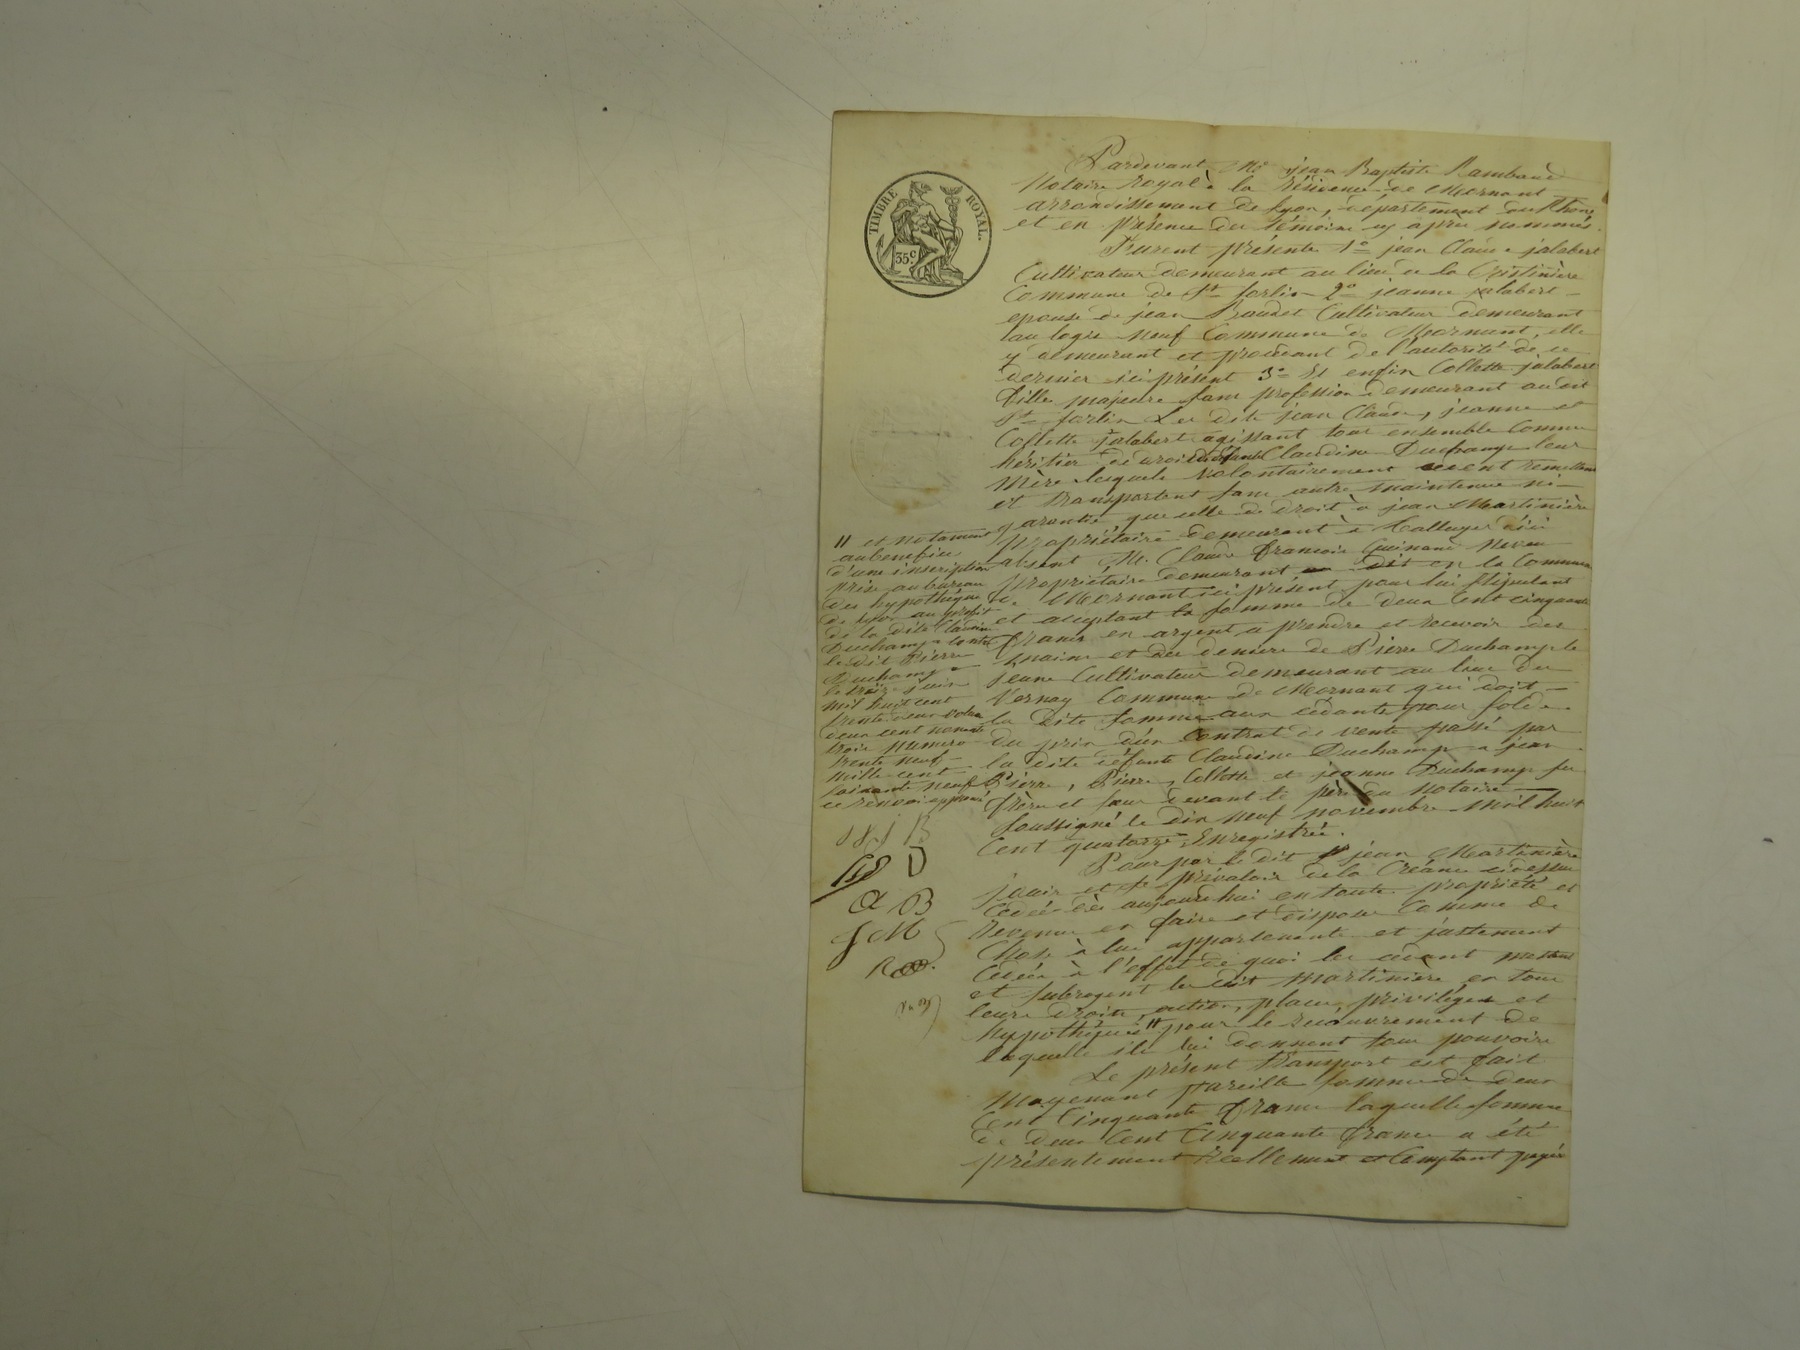 TIMBRE ROYAL.
35c.
Pardevant Me jean Baptiste Rambaud
Notaire Royal à la Résidence de Mornant
arrondissement de Lyon, département du Rhône
et en présence des témoins cy après nommés.
Furent présents 1o jean Claude jalabert
Cultivateur demeurant au lieu de la
Commune de St Sorlin 2o jeanne jalabert
epouse de jean Baudet Cultivateur demeurant
au logis neuf Commune de Mornant, elle
y demeurant et procédant de l'autorité de ce
dernier ici présent 3o Et enfin Collette jalabert
fille majeure sans profession demeurant au dit
St Sorlin Les dits jean Claude, jeanne et
Collette jalabert agissant tous ensemble Comme
héritiers de droit de défunte Claudine Duchamp leur
Mère lesquels Volontairement cèdent remettent
et transportent sans autre maintenue ni
garantie que celle de droit à jean Martinière
propriétaire demeurant à Talluyer d'ici
absent Mr. Claude françois Guinand Neveu
propriétaire demeurant en la Commune
de Mornant ici présent pour lui stipulant
et acceptant la somme de deux Cent cinquante
francs en argent a prendre et recevoir des
mains et des deniers de Pierre Duchamp le
jeune Cultivateur demeurant au lieu du
Vernay Commune de Mornant qui doit
la dite somme aux cédants pour solde
du prix d'un Contrat de vente passé par
la dite défunte Claudine Duchamp a jean
Pierre, Pierre, Collette et jeanne Duchamp ses
frères et sœurs devant le père du Notaire
soussigné le dix neuf novembre mil huit
Cent quatorze Enregistrée.
Pour par le dit jean Martinière
jouir et se prévaloir de la Créance ci dessus
Cédée dès aujourdhui en toute propriété et
Revenus en faire et disposer Comme de
Chose à lui appartenante et justement
Cédée à l'effet de quoi les cédants mettent
et subrogent le dit Martinière en tous
leurs droits, action, place, privilèges et
hypothèques // pour le recouvrement de
laquelle ils lui donnent tous pouvoirs
Le présent transport est fait
Moyenant pareille somme de deux
Cent Cinquante francs laquelle somme
de deux Cent Cinquante francs a été
présentement réellement et Comptant payée
// et notament
au benefice
d'une inscription
prise au bureau
des hypothèques
de Lyon au profit
de la dite Claudine
Duchamp contre
le dit Pierre
Duchamp
le treize juin
mil huit cent
trente deux volume
deux cent nonante
trois numero
trente neuf
mille cent
soixante neuf
ce renvoi approuvé
JM